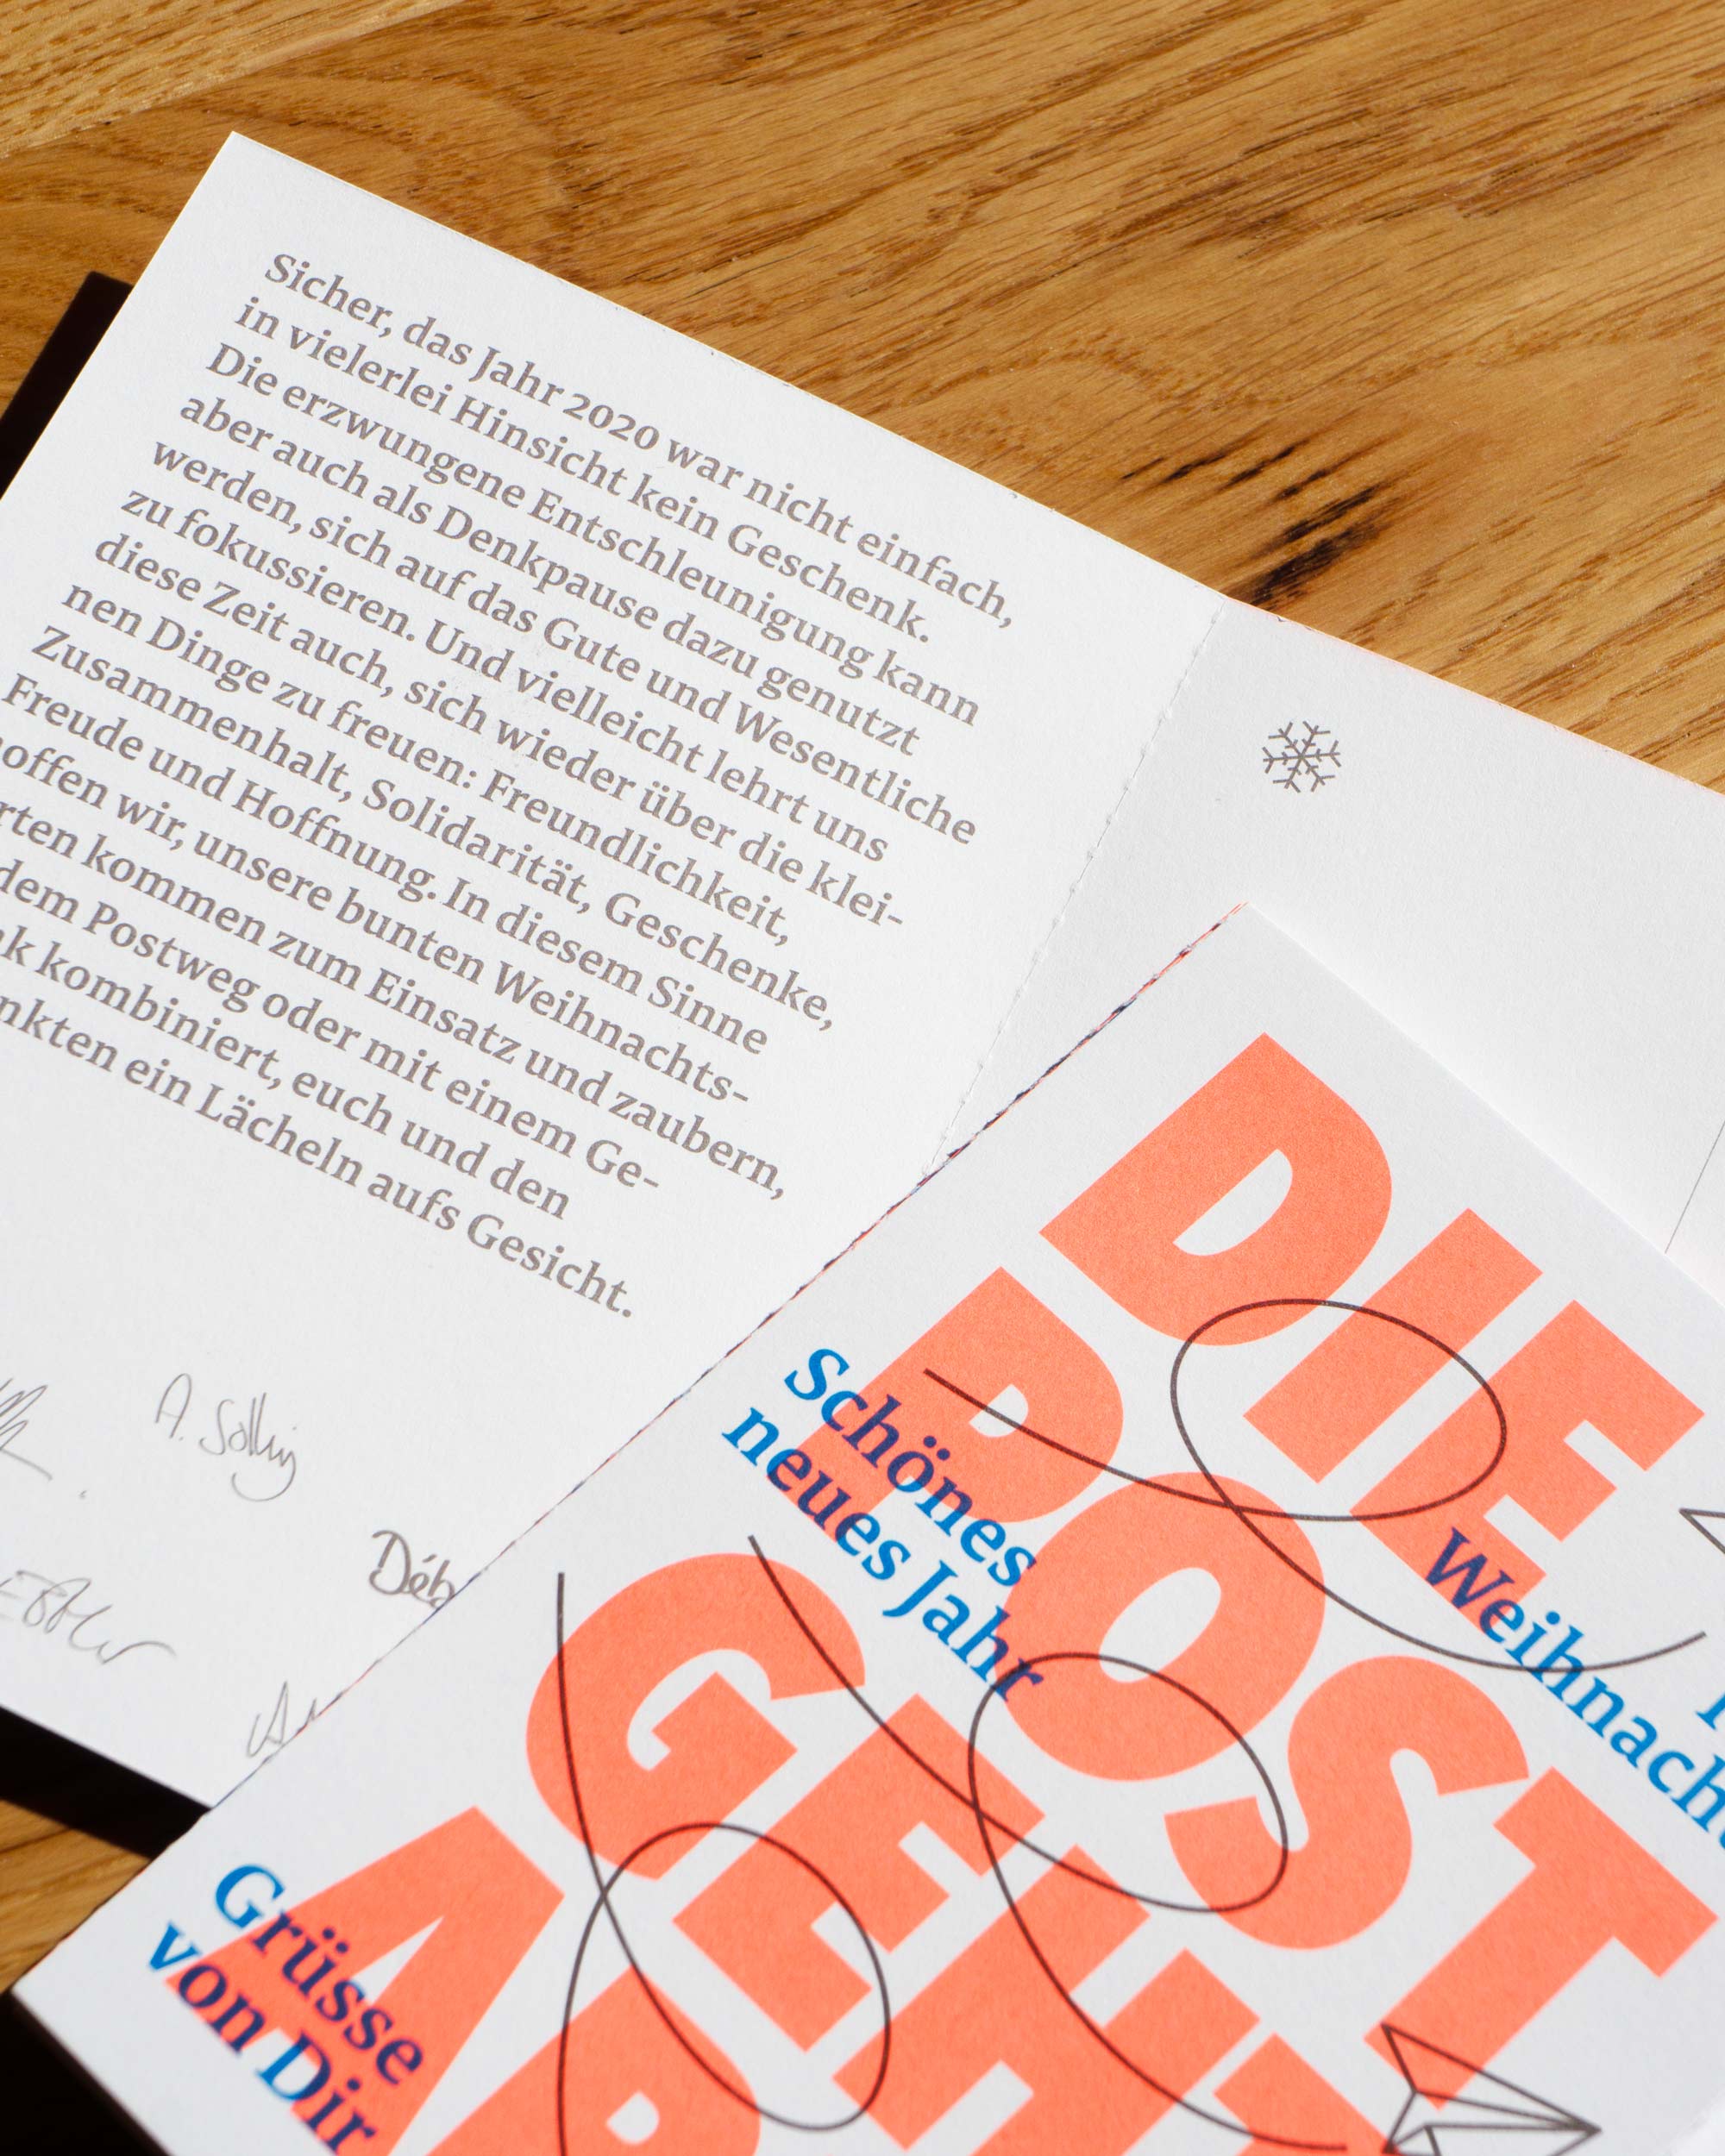 Sicher, das Jahr 2020 war nicht einfach,
in vielerlei Hinsicht kein Geschenk.
Die erzwungene Entschleunigung kann
aber auch als Denkpause dazu genutzt
werden, sich auf das Gute und Wesentliche
zu fokussieren. Und vielleicht lehrt uns
diese Zeit auch, sich wieder über die klei-
nen Dinge zu freuen: Freundlichkeit,
Zusammenhalt, Solidarität, Geschenke,
Freude und Hoffnung. In diesem Sinne
offen wir, unsere bunten Weihnachts-
rten kommen zum Einsatz und zaubern,
dem Postweg oder mit einem Ge-
nk kombiniert, euch und den
nkten ein Lächeln aufs Gesicht.
Déb
DIE
POST
GEHT
AB
Schönes
neues Jahr
Weihnacht
Grüsse
von Dir